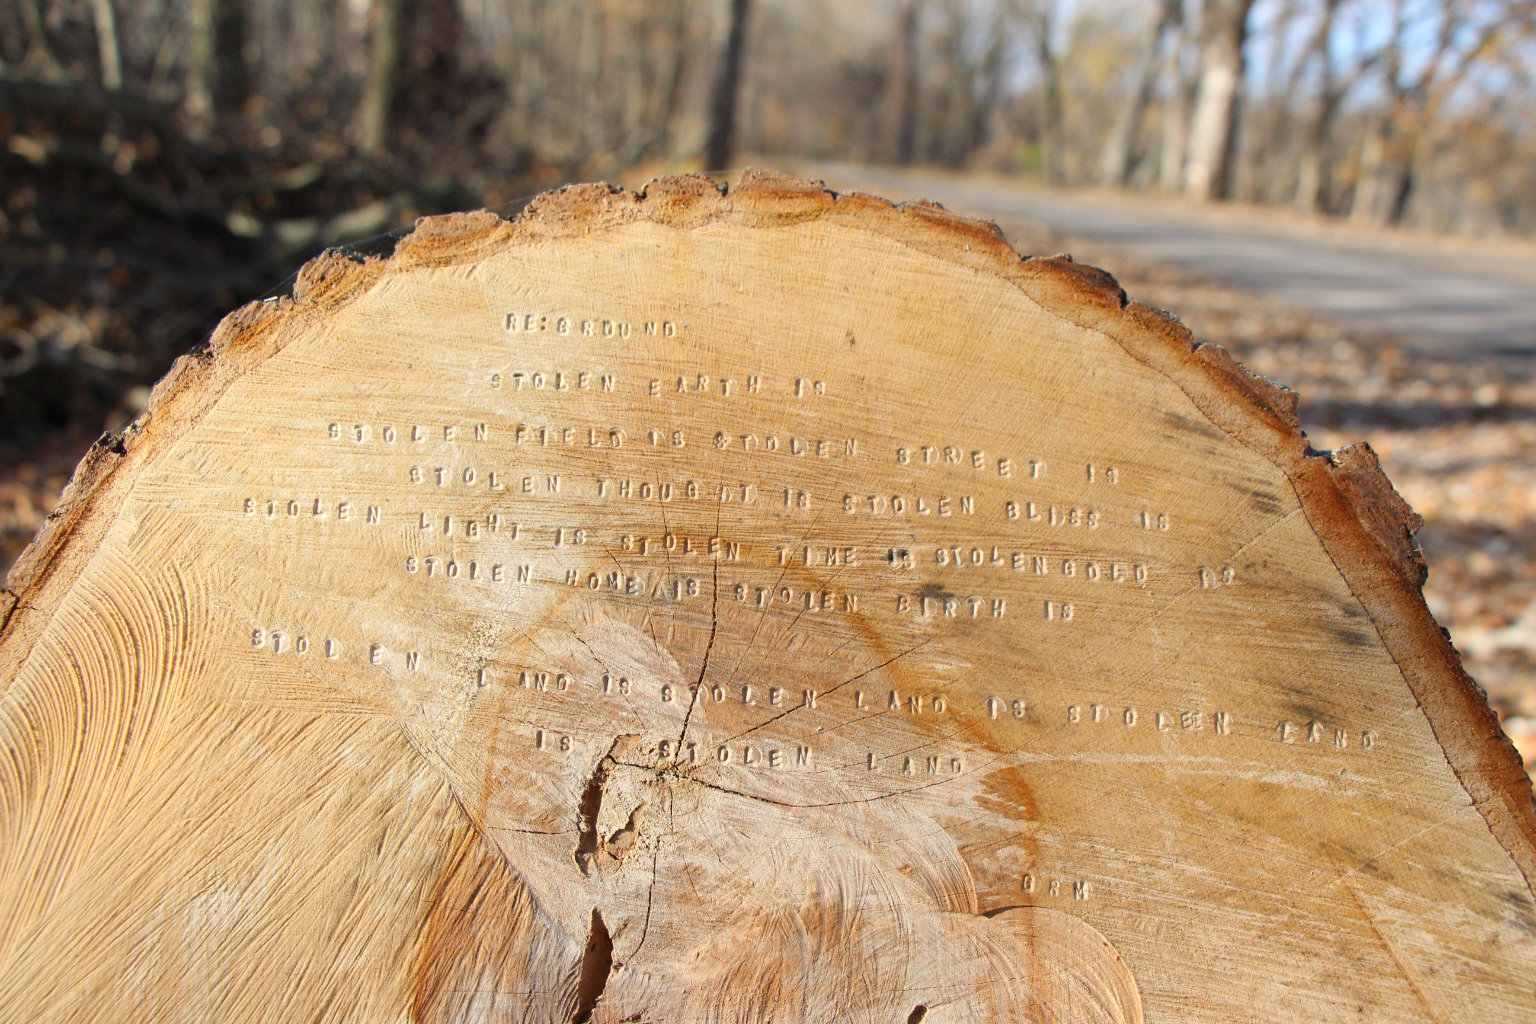 RE:GROUND
STOLEN EARTH IS
STOLEN FIELD IS STOLEN STREET IS
STOLEN THOUGHT IS STOLEN BLISS IS
STOLEN LIGHT IS STOLEN TIME IS STOLEN GOLD IS
STOLEN HOME IS STOLEN BIRTH IS
STOLEN LAND IS STOLEN LAND IS STOLEN LAND
IS STOLEN LAND
GRM